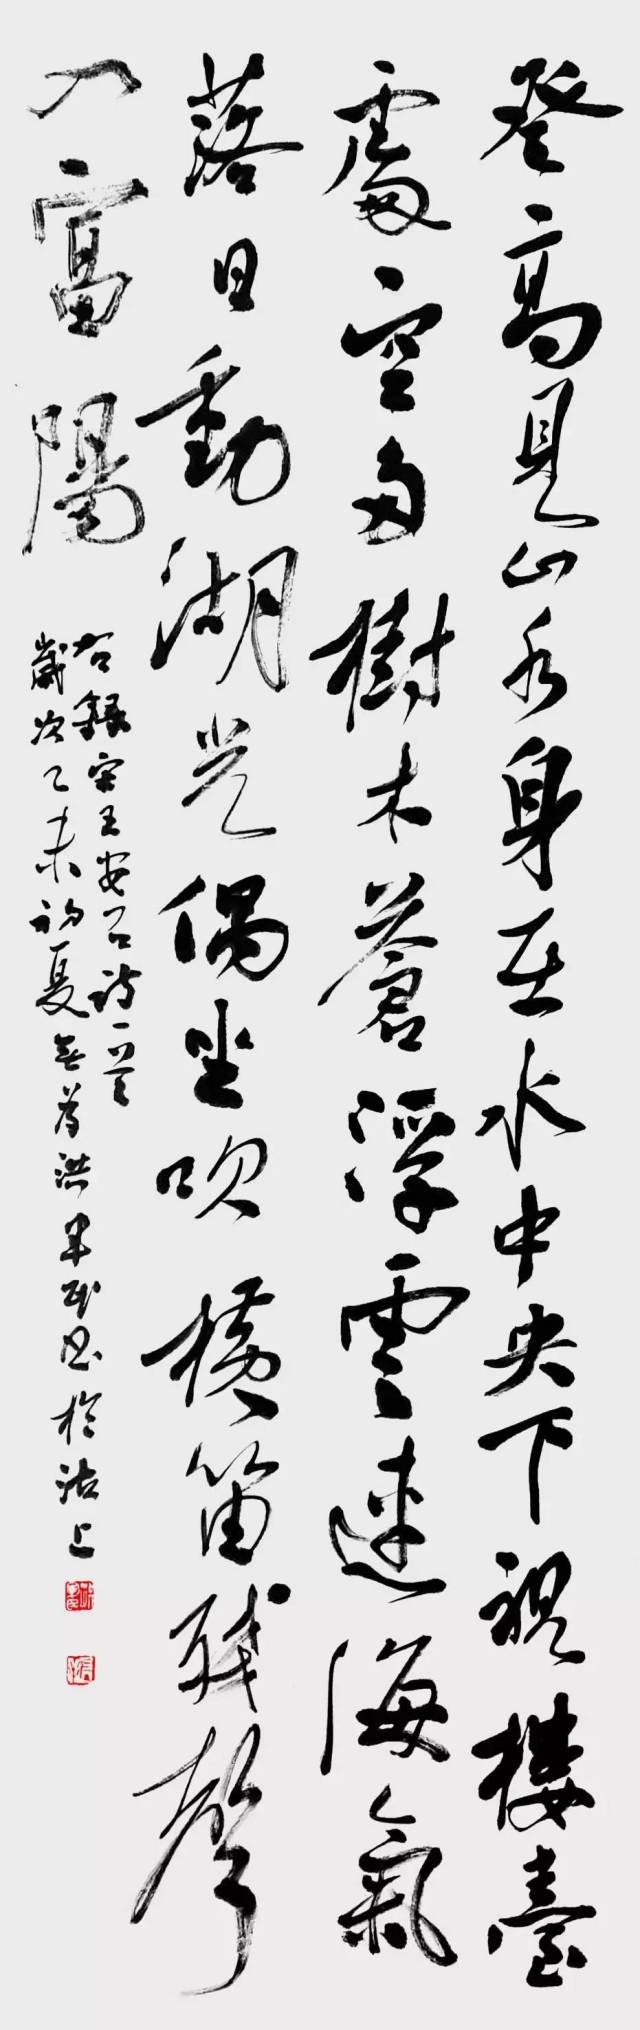 登高見山水身在水中央下視樓臺
處空多樹木蒼浮雲連海氣
落日動湖光偶坐吹橫笛殘聲
入富陽
右錄宋王安石詩一首
歲次乙未初夏 洪軍 書於沽上